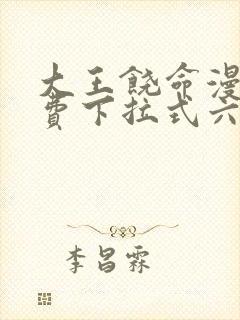 大王饶命漫
费下拉式六
李昌霖